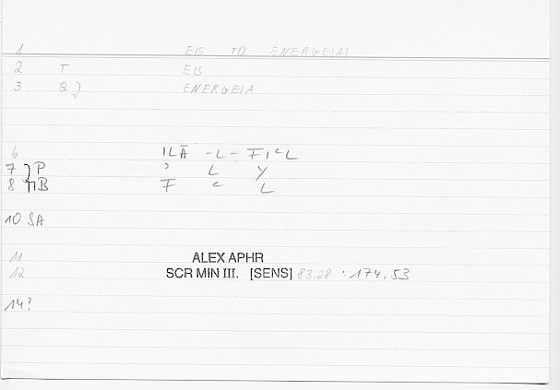 1 EIS TO ENERGEIAI
2 T EIS
3 B J ENERGEIA
6 ILĀ -L- FIcL
7 P L Y
8 B F c L
10 SA
11 ALEX APHR
12 SCR MIN III. [SENS] 83.28 : 174.53
14?